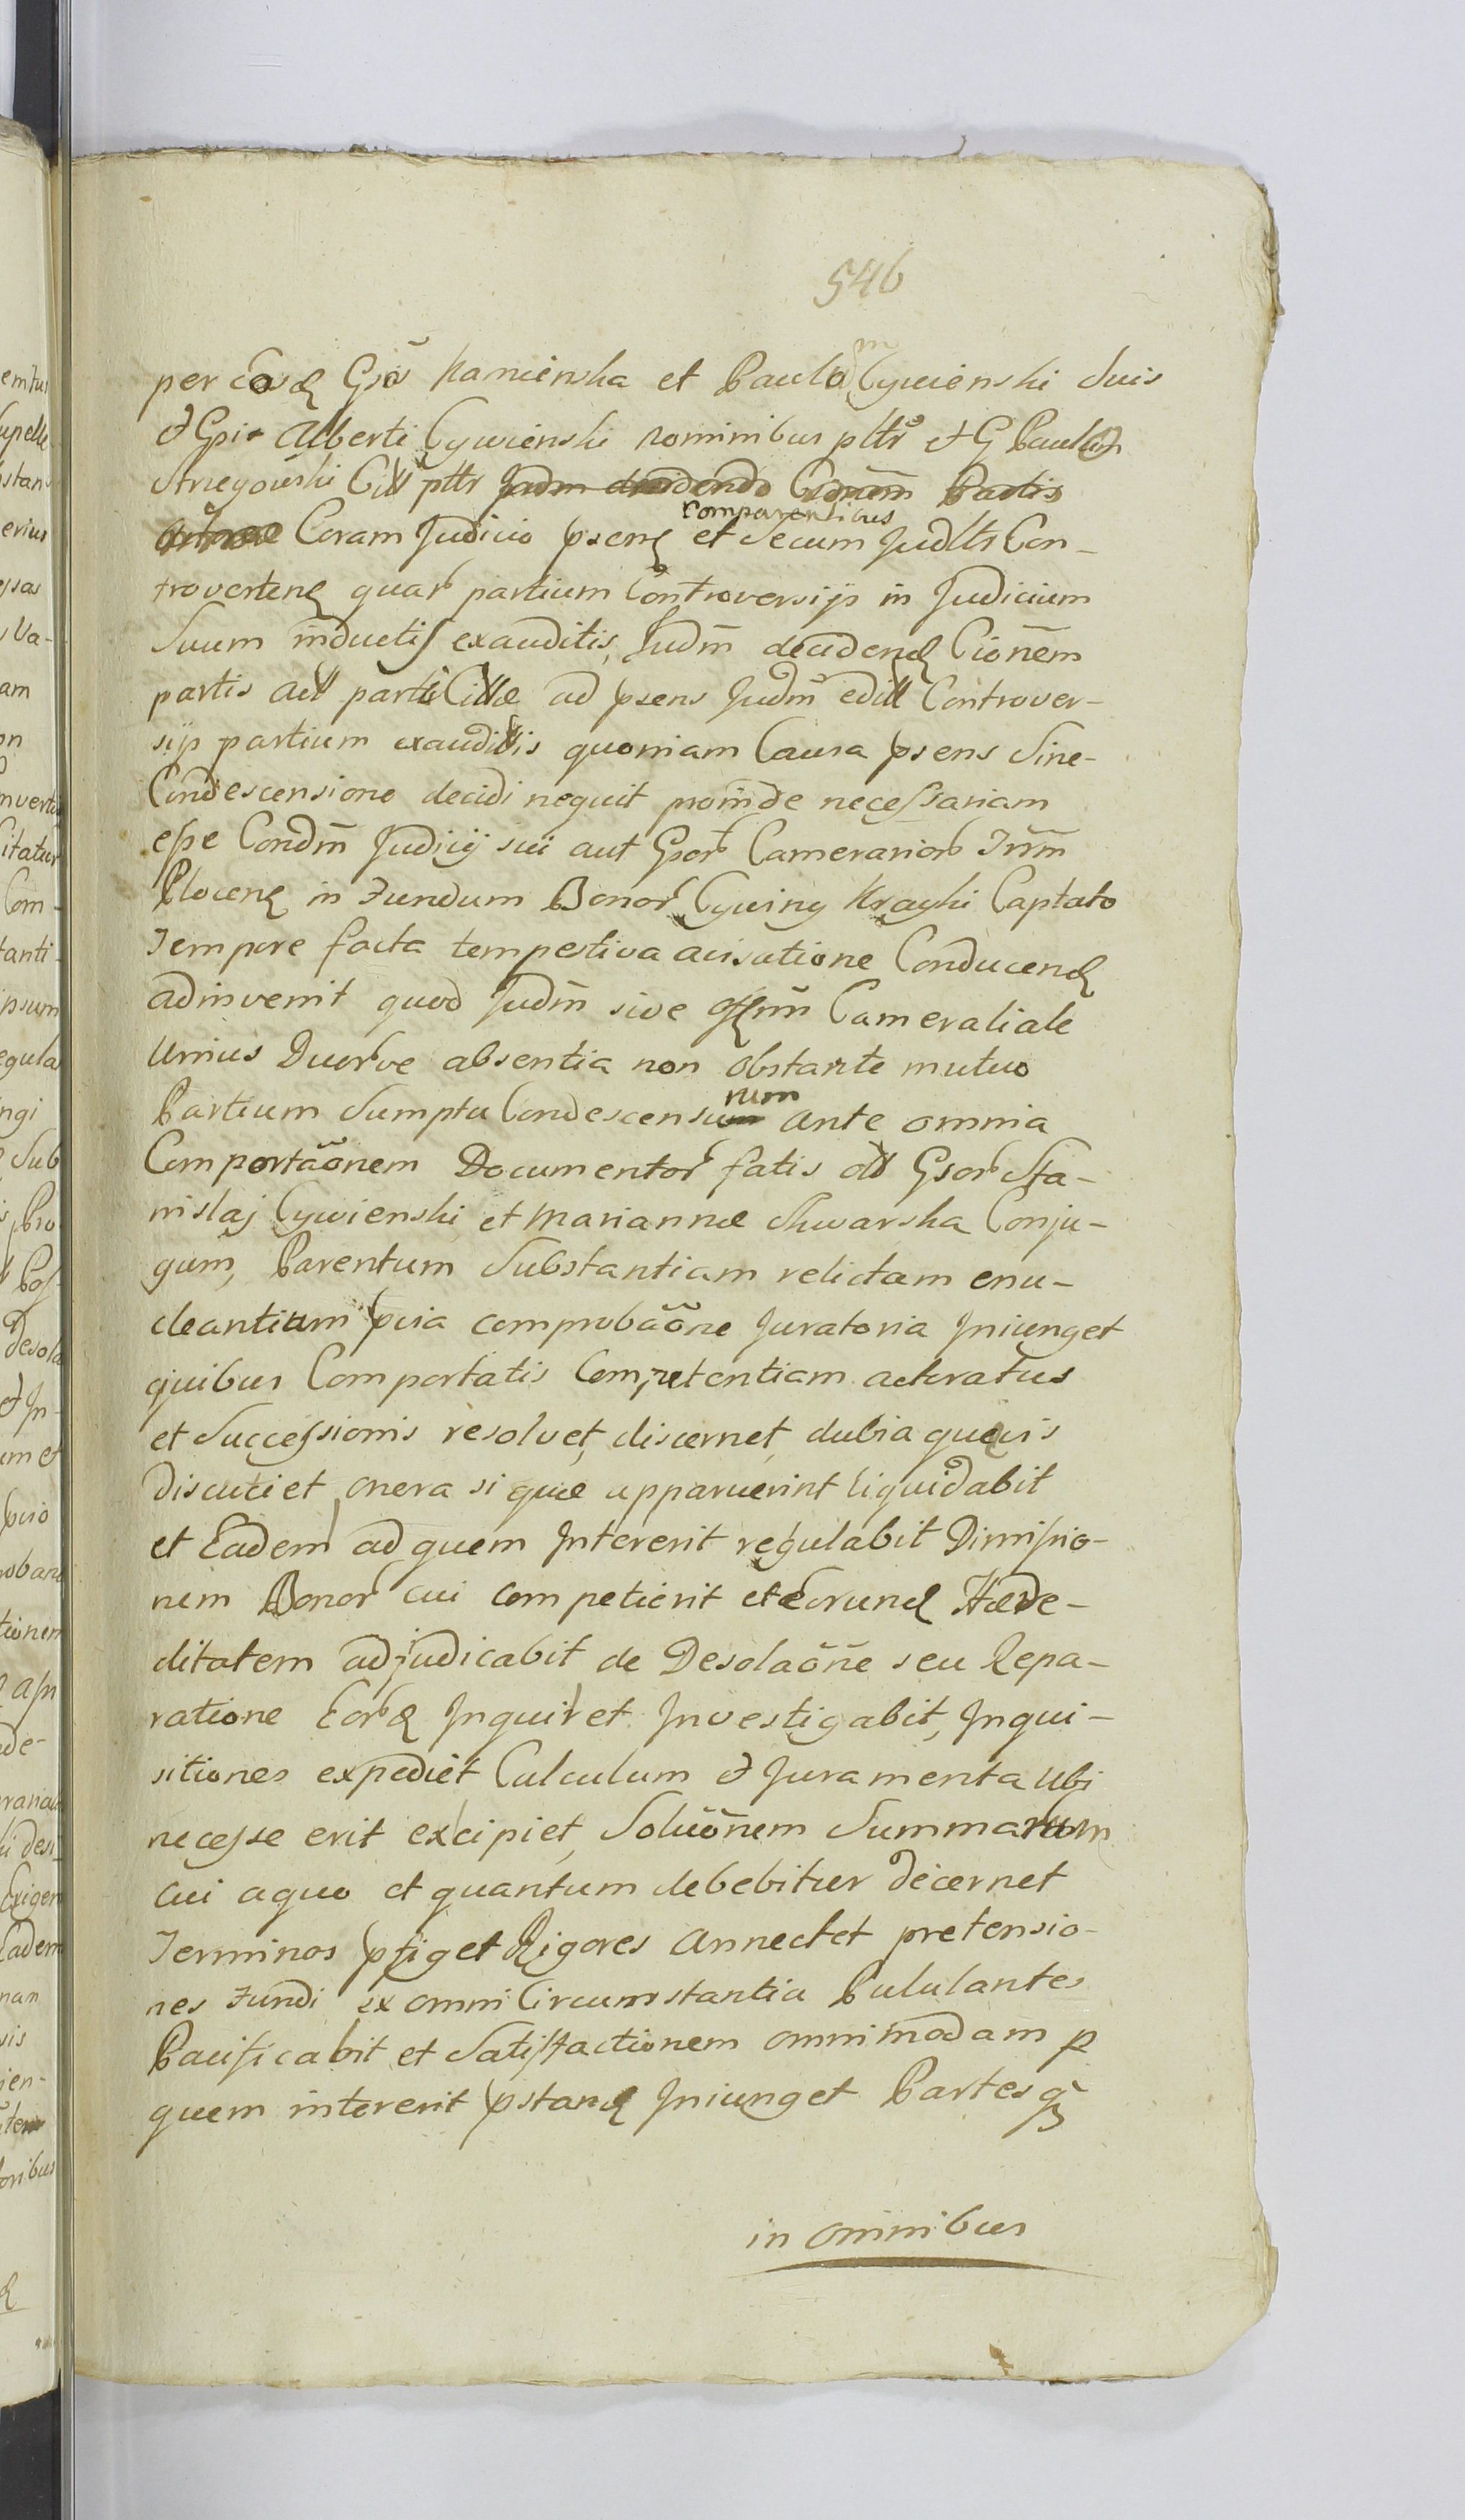 546
per Eosd Gsos Kamienska et Paulum Cywienski Suis
et Gsi Alberti Cywienski nominibus pttr et G Paulum
Strzegowski Citt pttr Judm decidendo Cionem Partis
Coram Judicio psend comparentibus et Secum Judltr Con-
troverten quar partium Controversijs in Judicium
Suum inductis exauditis, Judm decidend Cionem
partis act parti Cittae ad psens Judm edill Controver-
sijs partium exauditis quoniam Causa psens Sine-
Condescensione decidi nequit proinde necessariam
esse Condm Judicij sui aut Gsor Camerarior Trrm
Plocen in Fundum Bonor Cywiny Krayki Captato
Tempore facta tempestiva avisatione Conducend
adinvenit quod Judm sive Offm Cameraliale
Unius Duorve absentia non obstante mutuo
Partium Sumptu Condescensurum ante omnia
Comportaonem Documentor fatis oll Gsor Sta-
nislaj Cywienski et Mariannae Skwarska Conju-
gum, Parentum Substantiam relictam enu-
cleantium pvia comprobaone Juratoria Iniunget
quibus Comportatis Competentiam actoratus
et Successionis resolvet, discernet, dubia quaevis
Discutiet, onera si quae apparuerint liquidabit
et Eadem ad quem Intererit regulabit Dimissio-
nem Bonor cui competierit et Eorund Haere-
ditatem adjudicabit de Desolaone seu Repa-
ratione Eord Inquiret Investigabit, Inqui-
sitiones expediet Calculum et Juramenta ubi
necesse erit excipiet, Soluonem Summarum
cui aquo et quantum debebitur decernet
Terminos pfiget Rigores annectet pretensio-
nes Fundi ex omni Circumstantia Pululantes
Pacificabit et Satisfactionem omnimodam p
quem intererit pstand Iniunget Partesq
in omnibus